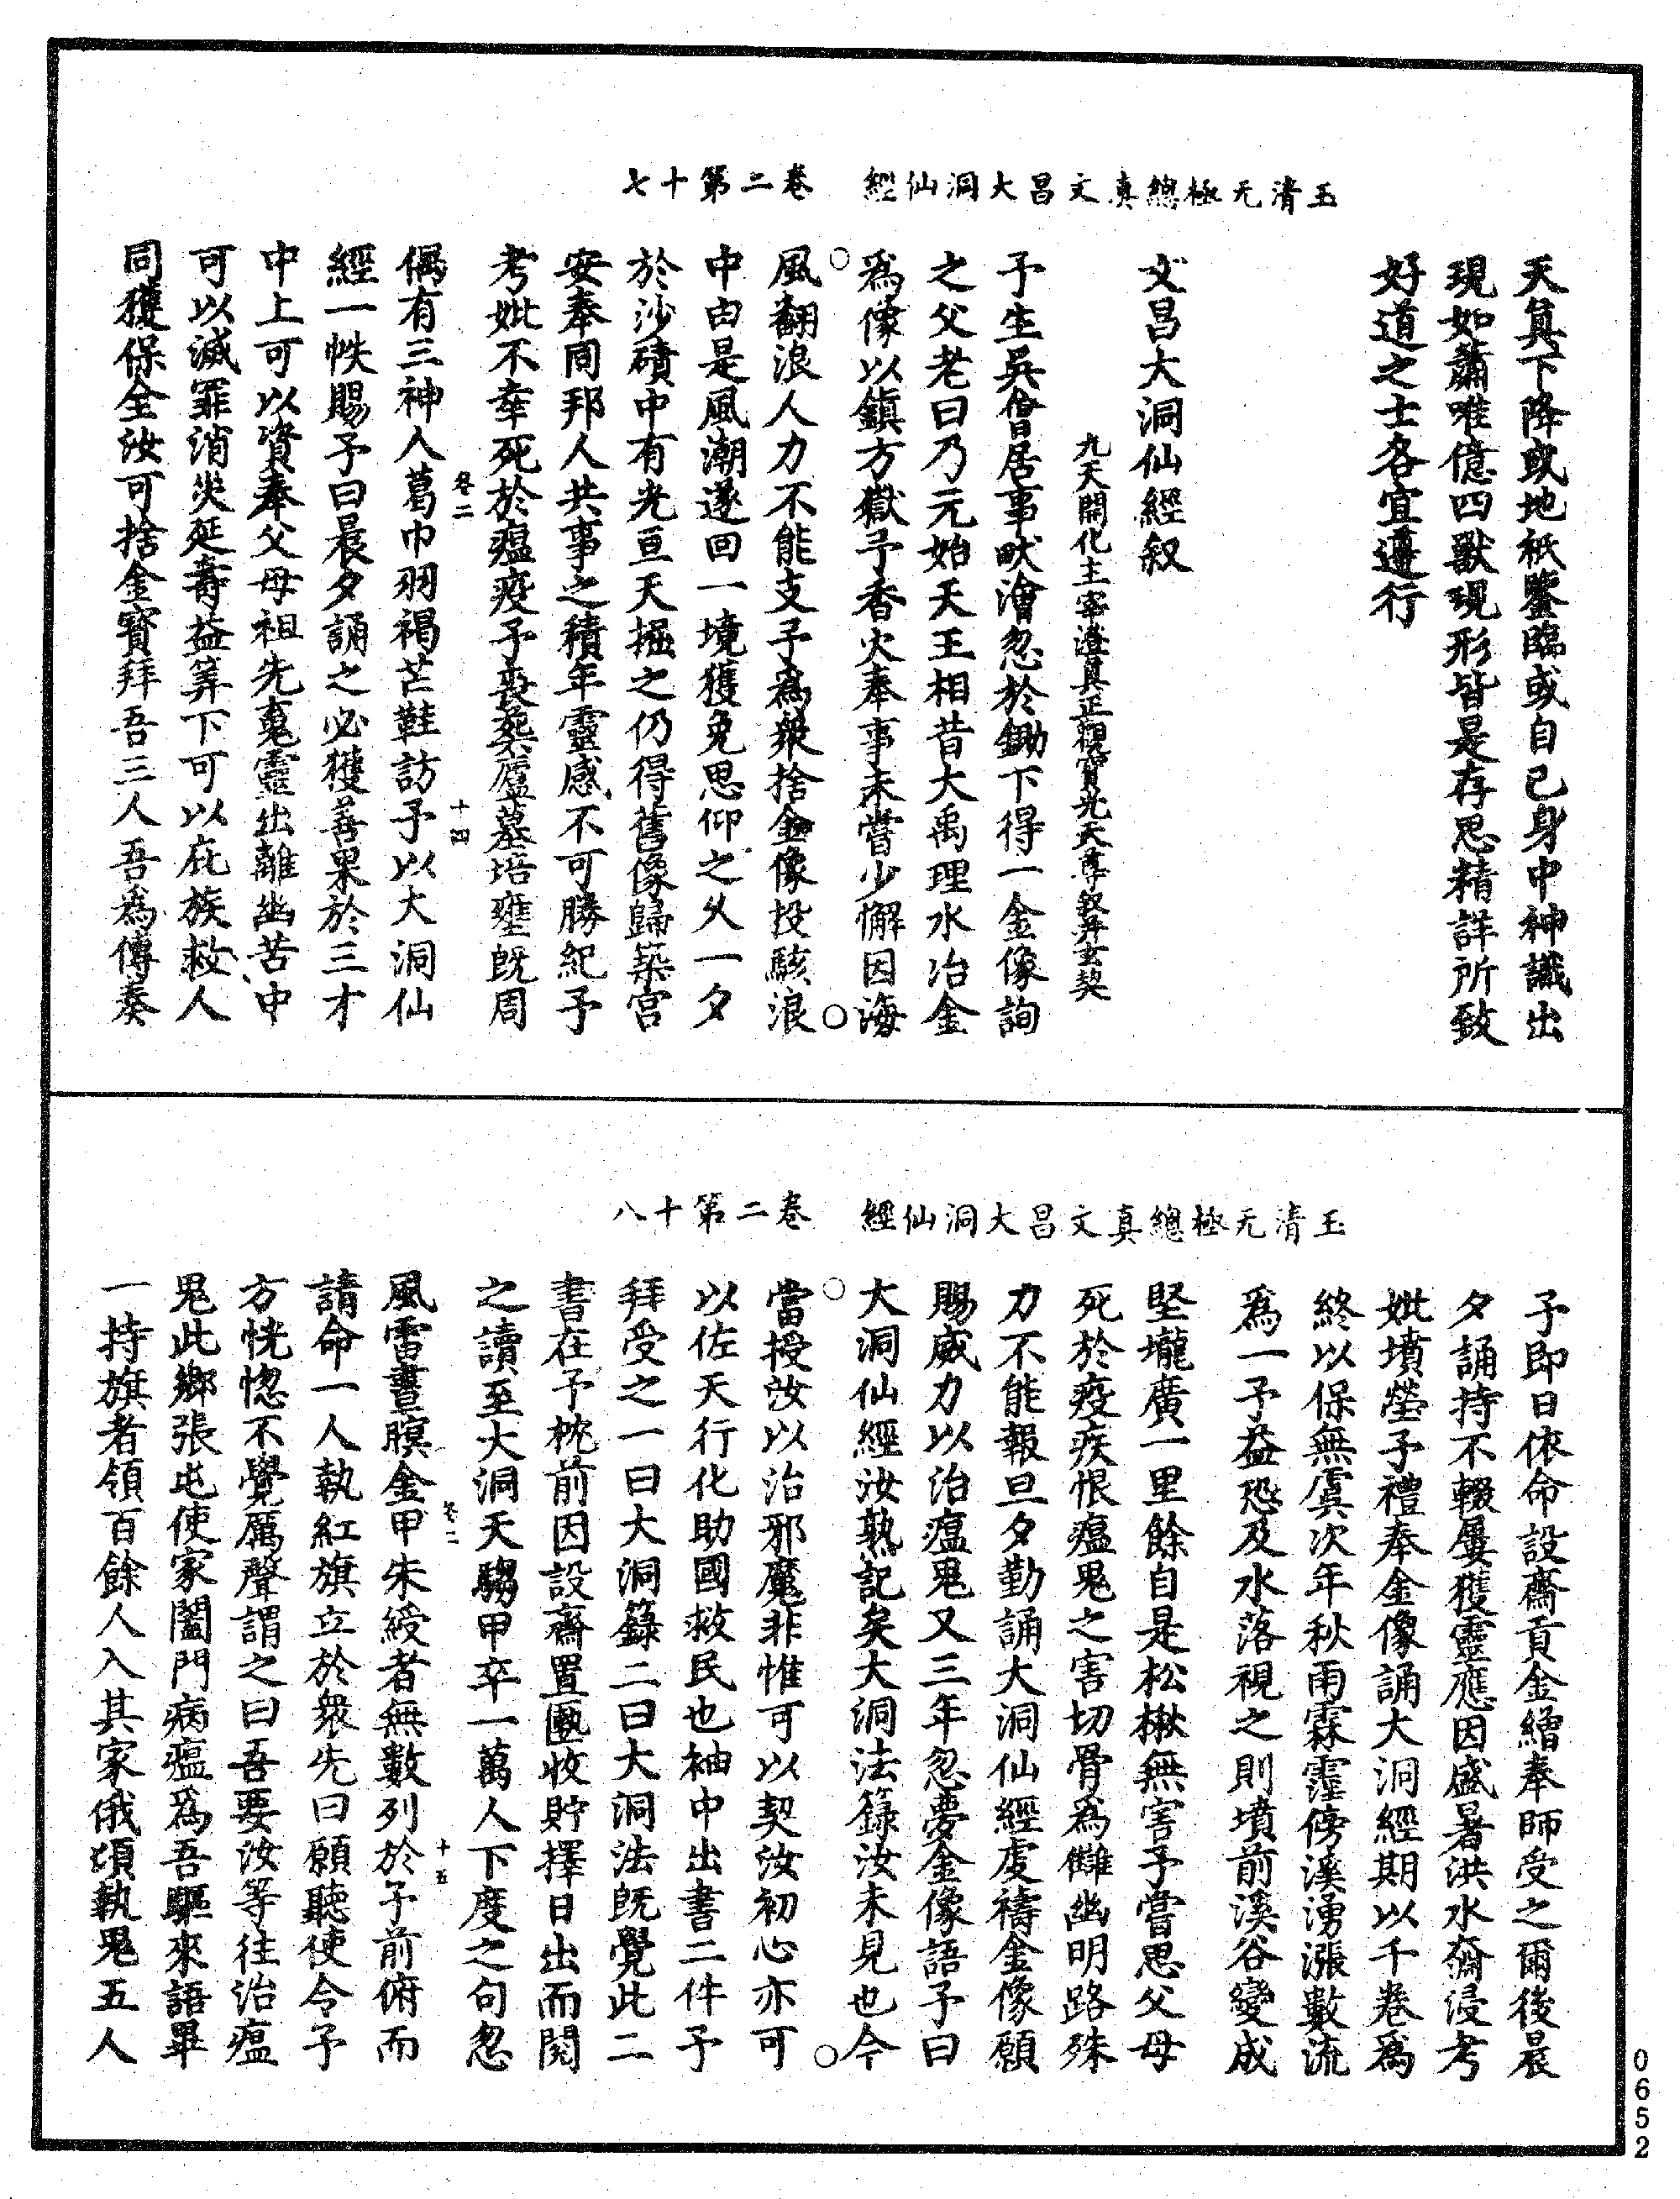 玉清无極總真文昌大洞仙經　卷二第十七
天真下降或地祇鑒臨或自己身中神識出
現如蕭唯億四獸現形皆是存思精詳所致
好道之士各宜遵行
文昌大洞仙經叙
九天開化主宰澄真正觀寶光天尊叙并玄契
予生吳會居事畎澮忽於鋤下得一金像詢
之父老曰乃元始天王相昔大禹理水冶金
為像以鎮方嶽予香火奉事未嘗少懈因海
風翻浪人力不能支予為衆捨金像投駭浪
中由是風潮遂回一境獲免思仰之久一夕
於沙磧中有光亘天掘之仍得舊像歸築宮
安奉同邦人共事之積年靈感不可勝紀予
考妣不幸死於瘟疫予喪葬廬墓培壅旣周
偶有三神人葛巾羽褐芒鞋訪予以大洞仙
經一帙賜予曰晨夕誦之必獲善果於三才
中上可以資奉父母祖先䰟靈出離幽苦中
可以滅罪消災延壽益筭下可以庇族救人
同獲保全汝可捨金寶拜吾三人吾為傳奏
卷二　十四
玉清无極總真文昌大洞仙經　卷二第十八
予即日依命設齋貢金繒奉師受之爾後晨
夕誦持不輟屢獲靈應因盛暑洪水㵎浸考
妣墳塋予禮奉金像誦大洞經期以千卷為
終以保無虞次年秋雨霖霪傍溪湧漲數流
為一予益恐及水落視之則墳前溪谷變成
堅壠廣一里餘自是松楸無害予嘗思父母
死於疫疾恨瘟鬼之害切骨為讎幽明路殊
力不能報旦夕勤誦大洞仙經虔禱金像願
賜威力以治瘟鬼又三年忽夢金像語予曰
大洞仙經汝熟記矣大洞法籙汝未見也今
當授汝以治邪魔非惟可以契汝初心亦可
以佐天行化助國救民也袖中出書二件予
拜受之一曰大洞籙二曰大洞法旣覺此二
書在予枕前因設齋置匭收貯擇日出而閱
之讀至大洞天驅甲卒一萬人下度之句忽
風雷晝暝金甲朱綬者無數列於予前俯而
請命一人執紅旗立於衆先曰願聽使令予
方恍惚不覺厲聲謂之曰吾要汝等往治瘟
鬼此鄉張屯使家闔門病瘟為吾驅來語畢
一持旗者領百餘人入其家俄頃執鬼五人
卷二　十五
0652